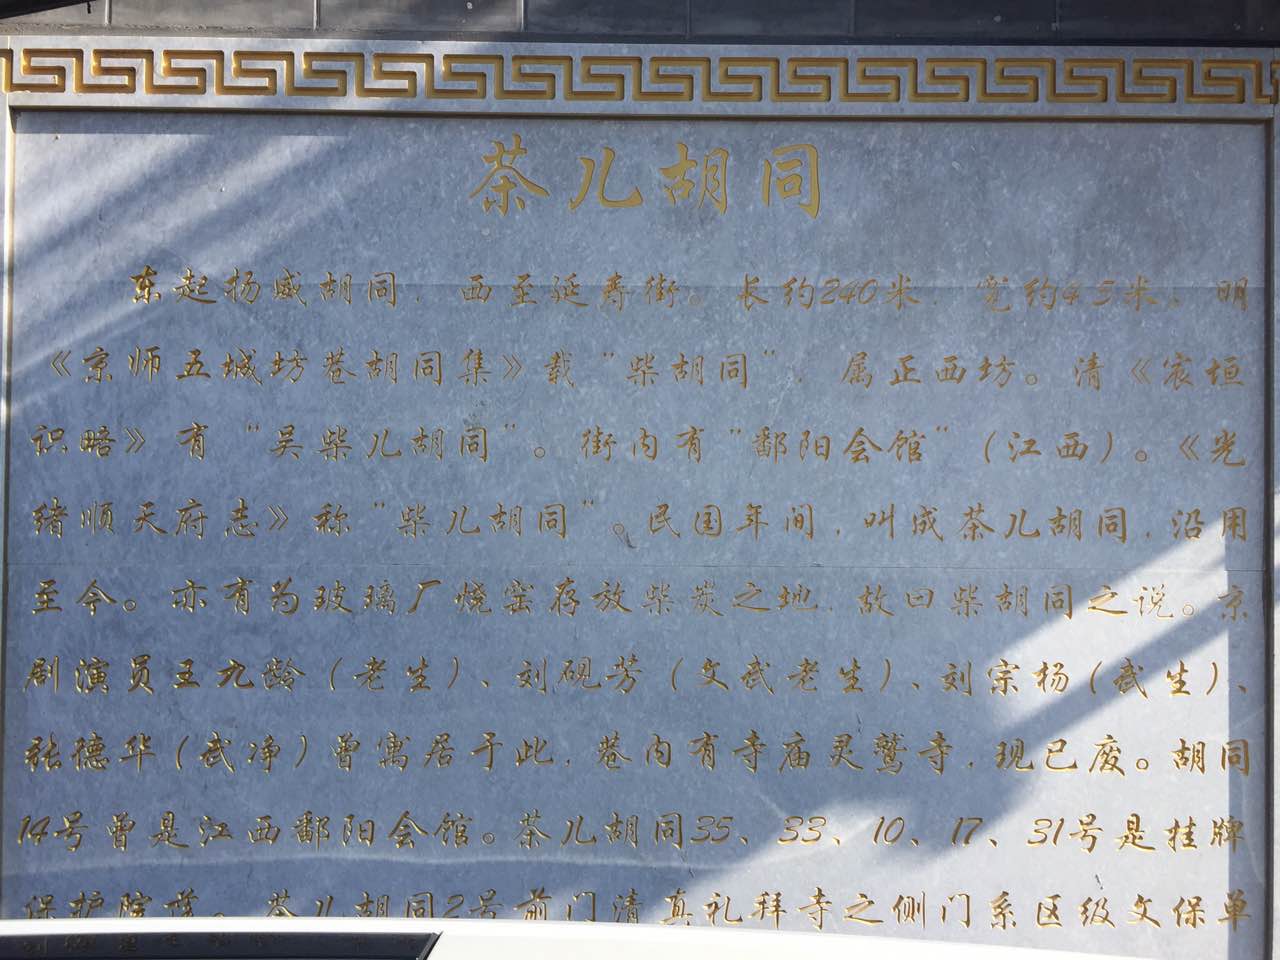 茶儿胡同
东起扬威胡同，西至延寿街。长约240米，宽约4.5米，明
《京师五城坊巷胡同集》载“柴胡同”，属正西坊。清《宸垣
识略》有“吴柴儿胡同”。街内有“鄱阳会馆”（江西）。《光
绪顺天府志》称“柴儿胡同”。民国年间，叫成茶儿胡同，沿用
至今。亦有为玻璃厂烧窑存放柴炭之地，故曰柴胡同之说。京
剧演员王九龄（老生）、刘砚芳（文武老生）、刘宗杨（武生）、
张德华（武净）曾寓居于此，巷内有寺庙灵鹫寺，现已废。胡同
14号曾是江西鄱阳会馆。茶儿胡同35、33、10、17、31号是挂牌
保护院落。茶儿胡同2号前门清真礼拜寺之侧门系区级文保单